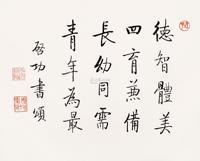 德智體美
四育兼備
長幼同需
青年為最
啓功書頌